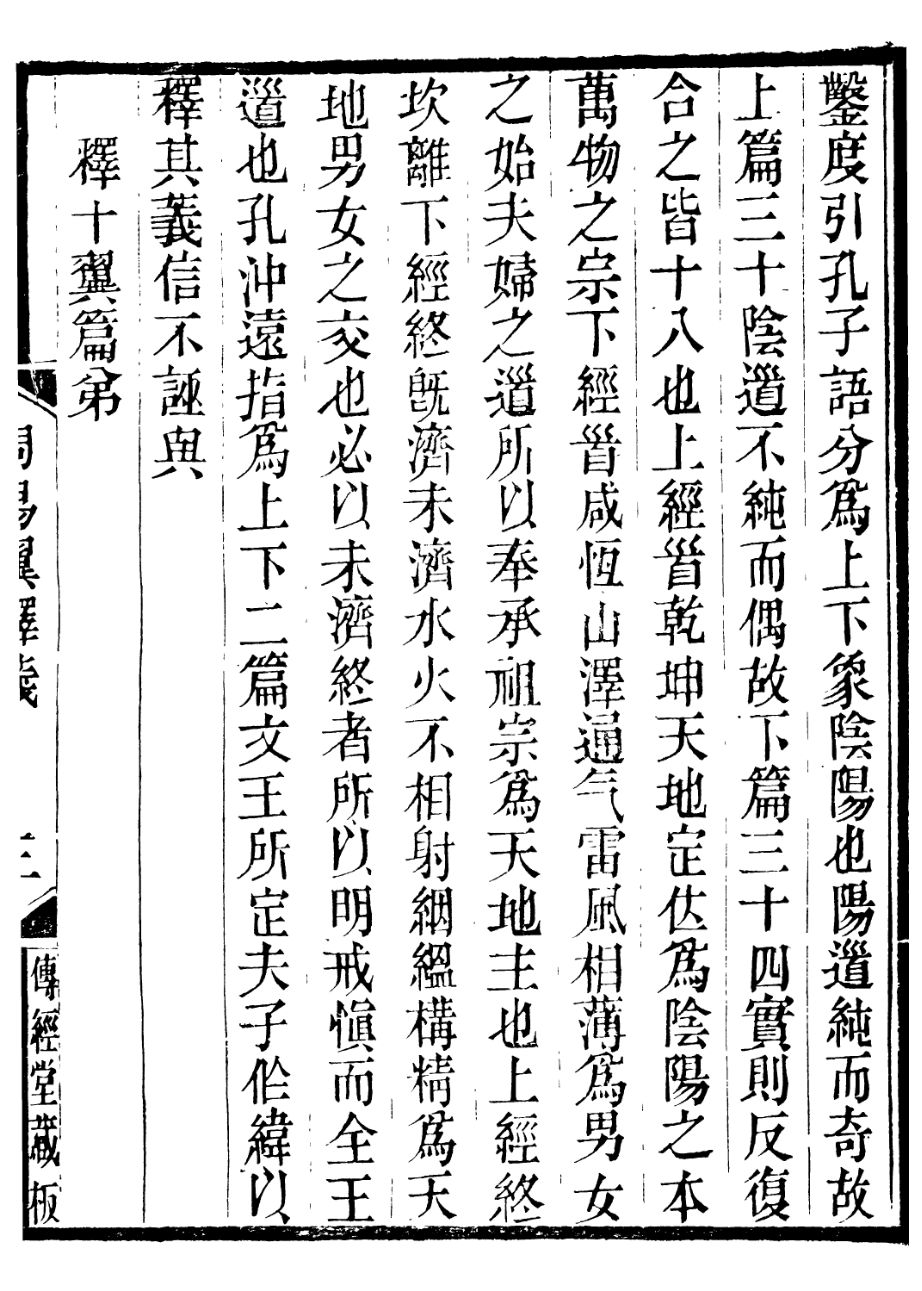 鑿度引孔子語分爲上下象陰陽也陽道純而奇故
上篇三十陰道不純而偶故下篇三十四實則反復
合之皆十八也上經𩠐乾坤天地定位爲陰陽之本
萬物之宗下經𩠐咸恆山澤通气雷風相薄爲男女
之始夫婦之道所以奉承祖宗爲天地主也上經終
坎離下經終既濟未濟水火不相射絪縕構精爲天
地男女之交也必以未濟終者所以明戒慎而全王
道也孔沖遠指爲上下二篇文王所定夫子作緯以
釋其義信不誣與
釋十翼篇弟
周易翼釋義
三
傳經堂藏板